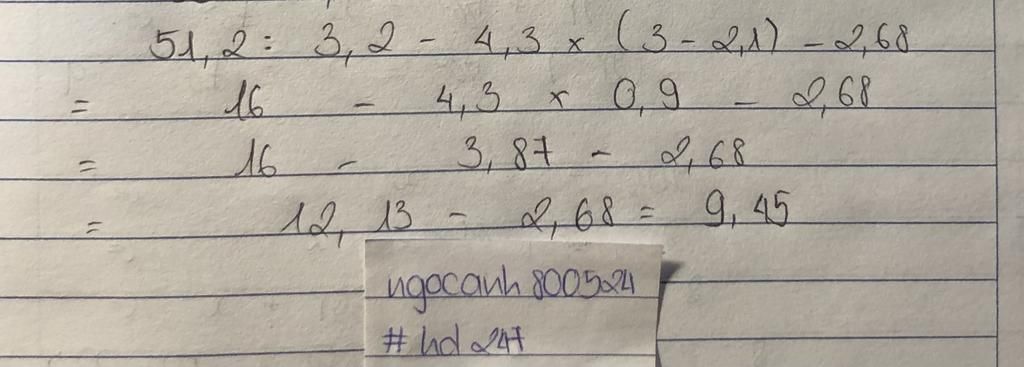 51,2 : 3,2 - 4,3 × (3 - 2,1) - 2,68
= 16 - 4,3 × 0,9 - 2,68
= 16 - 3,87 - 2,68
= 12,13 - 2,68 = 9,45
ngocanh800524
#hd247